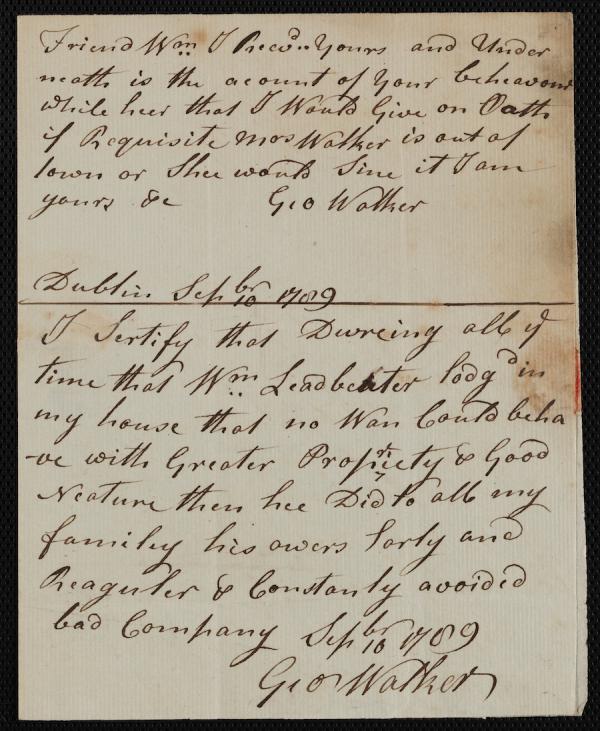 Friend Wm I Recevd Yours and Under
neath is the acount of Your beheavour
while heer that I Would Give on Oath
if Requisite Mrs Walker is out of
town or Shee would Sine it I am
yours &c Geo Walker
Dublin Sepbr 10 1789
I Sertify that Dureing all ye
time that Wm Leadbeater lodgd in
my house that no Man Could beha
-ve with Greater Propriety & Good
Neature then hee Did to all my
familey his owers Early and
Reaguler & Constantly avoided
bad Company Sepbr 10 1789
Geo Walker